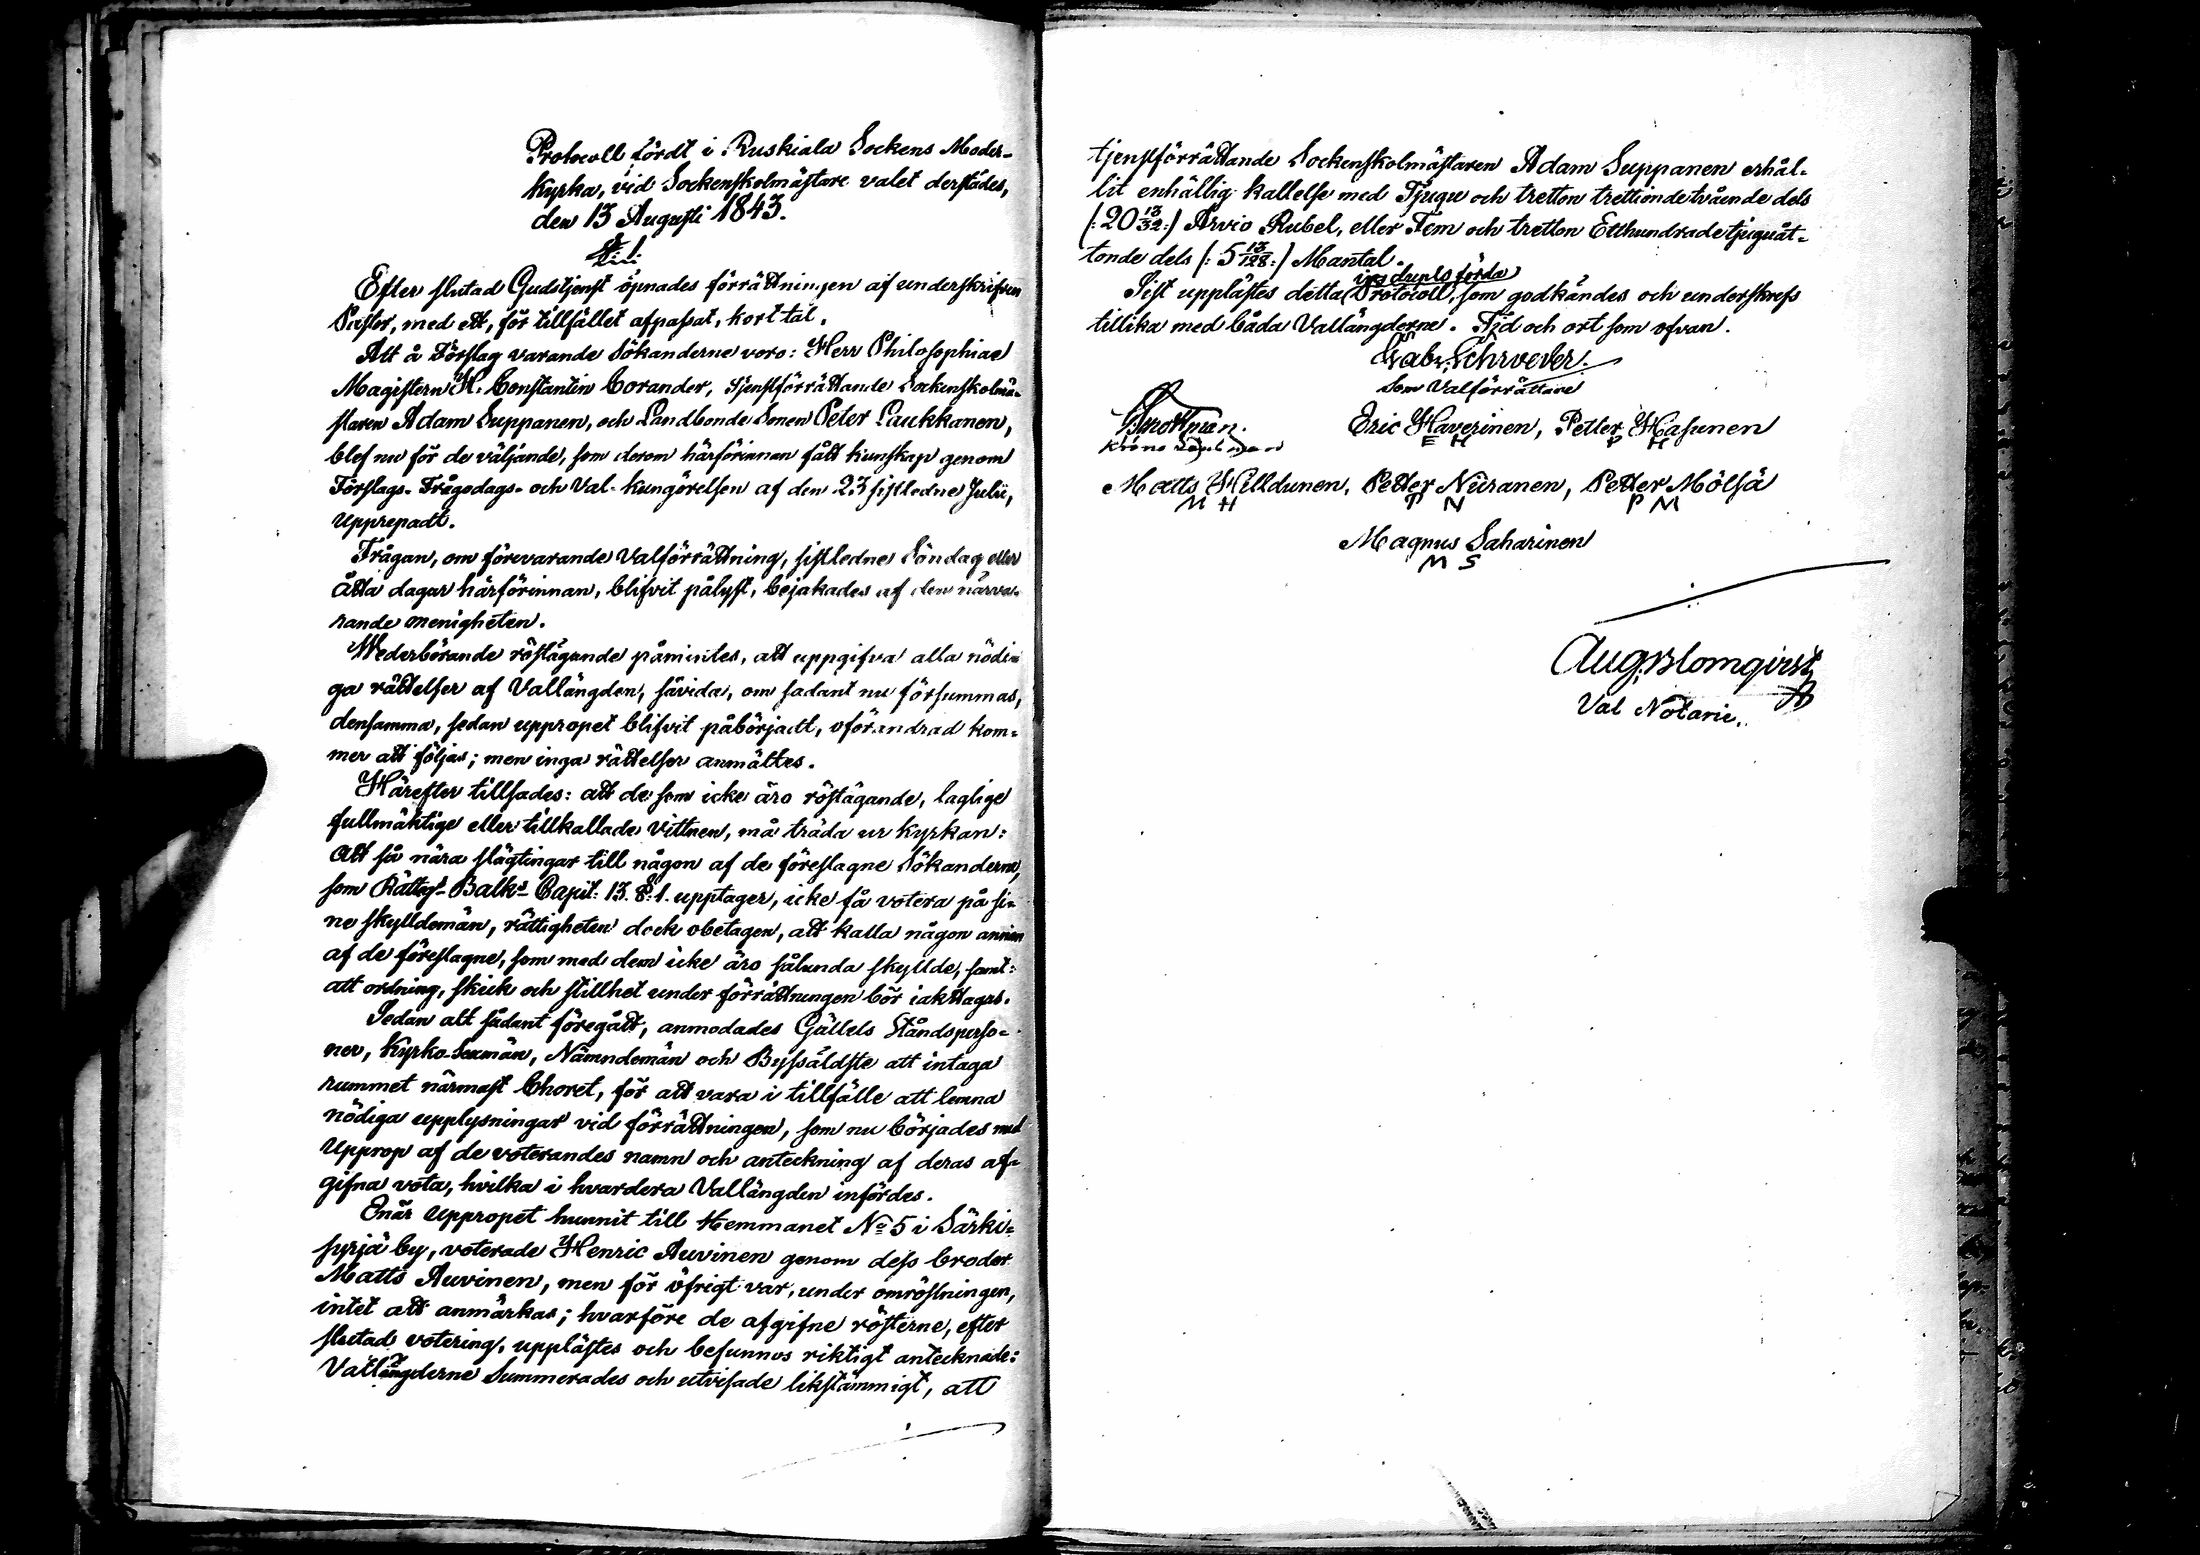 Protocoll fördt i Ruskiala Sockens Moder-
kyrka, vid Sockenskolmästare valet derstädes,
den 13 Augusti 1843.
Efter slutad Gudstjenst öpnades förrättningen af underskrifven
Pastor, med ett, för tillfället afpassat, kort tal.
Att å Förslag varande Sökanderne voro: Herr Philosophiae
Magistern K. Constantin Corander, tjenstförrättande Sockenskolmä-
staren Adam Suppanen, och Landbonde Sonen Peter Laukkanen,
blef nu för de väljande, som derom härförinnan fått kunskap genom
Förslags- Frågodags- och Val- kungörelsen af den 23 sistledne Julii,
upprepadt.
Frågan, om förevarande Valförrättning, sistledne Söndag eller
åtta dagar härförinnan, blifvit pålyst, bejakades af den närva-
rande menigheten.
Wederbörande röstägande påmintes, att uppgifva alla nödi-
ga rättelser af Vallängden, såvida, om sadant nu försummas,
densamma, sedan uppropet blifvit påbörjadt, oförändrad kom-
mer att följas; men inga rättelser anmältes.
Härefter tillsades: att de som icke äro röstägande, laglige
fullmäktige eller tillkallade Vittnen, må träda ur kyrkan:
Att så nära slägtingar till någon af de föreslagne Sökanderne,
som Rättegs Balks Capit: 13. §: 1. upptager, icke få votera på si-
ne skylldemän, rättigheten dock obetagen, att kalla någon annan
af de föreslagne, som med dem icke äro sålunda skyllde, samt:
att ordning, skick och stillhet under förrättningen bör iakttagas.
Sedan alt sådant föregått, anmodades Gällets Ståndsperso-
ner, Kyrko-Sexmän, Nämndemän och Bysåldste att intaga
rummet närmast Choret, för att vara i tillfälle att lemna
nödiga upplysningar vid förrättningen, som nu börjades med
Upprop af de voterandes namn och anteckning af deras af-
gifna vota, hvilka i hvardera Vallängden infördes.
Enär Uppropet hunnit till Hemmanet No 5 i Särki-
syrjä by, voterade Henric Auvinen genom dess broder
Matts Auvinen, men för öfrigt var, under omröstningen,
intet att anmärkas; hvarföre de afgifne rösterne, efter
slutad votering, upplästes och befunnos riktigt antecknade:
Vallängderne Summerades och utvisade likstämmigt, att
tjenstförrättande Sockenskolmästaren Adam Suppanen erhål-
lit enhällig kallelse med Tjugu och tretton trettiondetvående dels
(: 20 13/32 :) Arvio Rubel, eller Fem och tretton Etthundradetjuguåt-
tonde dels (: 5 13/128 :) Mantal.
förda
Sist upplästes detta Protocoll, som godkändes och underskrefs
tillika med båda Vallängderne. Tid och ort som ofvan.
Gab. Schroeder.
Som Valförrättare
Krono Länsman
Eric Haverinen, Petter Hasunen
E H P H
Matts Hilldunen, Petter Niiranen, Petter Mölsä
M H P N P M
Magnus Saharinen
M S
Aug. Blomqvist
Val Notarie.